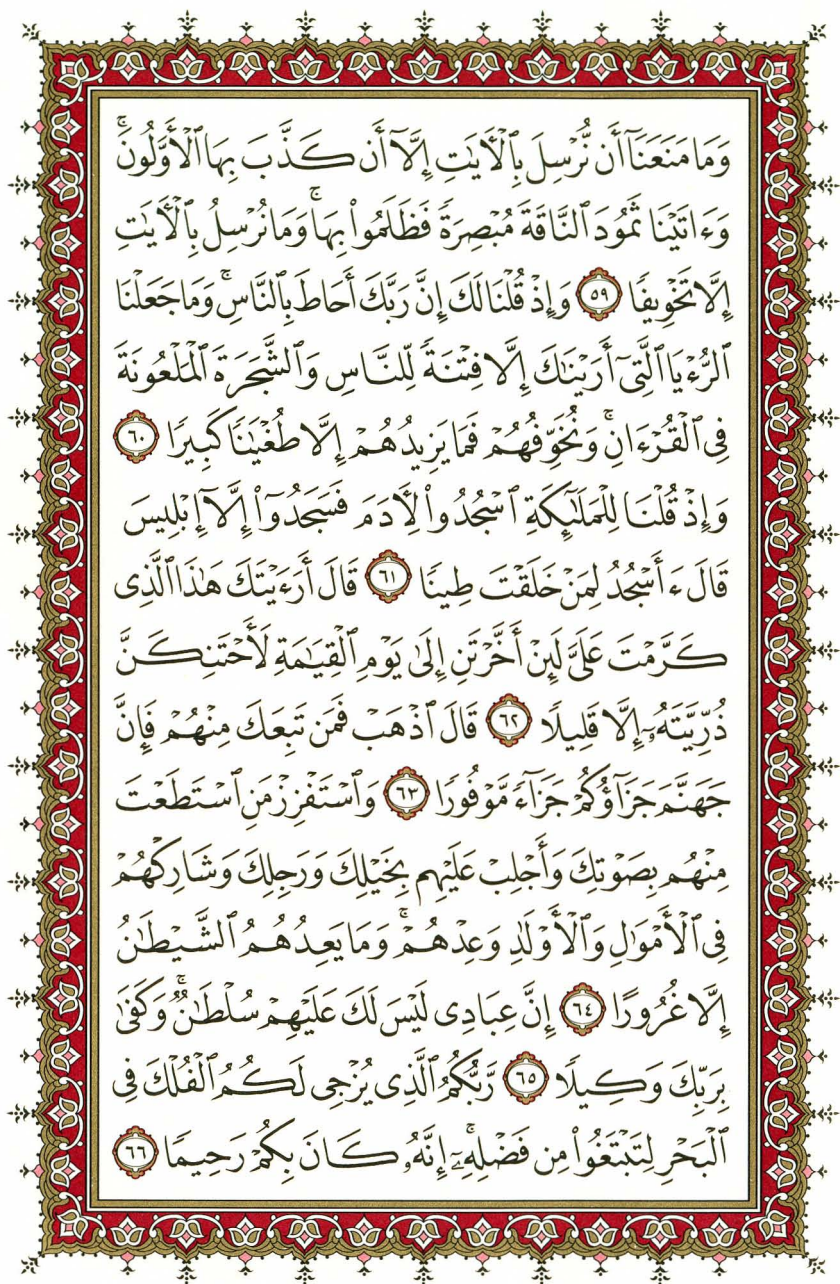 وَمَا مَنَعَنَآ أَن نُّرْسِلَ بِٱلْءَايَٰتِ إِلَّآ أَن كَذَّبَ بِهَا ٱلْأَوَّلُونَۚ
وَءَاتَيْنَا ثَمُودَ ٱلنَّاقَةَ مُبْصِرَةً فَظَلَمُوا۟ بِهَاۚ وَمَا نُرْسِلُ بِٱلْءَايَٰتِ
إِلَّا تَخْوِيفًا ٥٩ وَإِذْ قُلْنَا لَكَ إِنَّ رَبَّكَ أَحَاطَ بِٱلنَّاسِۚ وَمَا جَعَلْنَا
ٱلرُّءْيَا ٱلَّتِىٓ أَرَيْنَٰكَ إِلَّا فِتْنَةً لِّلنَّاسِ وَٱلشَّجَرَةَ ٱلْمَلْعُونَةَ
فِى ٱلْقُرْءَانِۚ وَنُخَوِّفُهُمْ فَمَا يَزِيدُهُمْ إِلَّا طُغْيَٰنًا كَبِيرًا ٦٠
وَإِذْ قُلْنَا لِلْمَلَٰٓئِكَةِ ٱسْجُدُوا۟ لِءَادَمَ فَسَجَدُوٓا۟ إِلَّآ إِبْلِيسَ
قَالَ ءَأَسْجُدُ لِمَنْ خَلَقْتَ طِينًا ٦١ قَالَ أَرَءَيْتَكَ هَٰذَا ٱلَّذِى
كَرَّمْتَ عَلَىَّ لَئِنْ أَخَّرْتَنِ إِلَىٰ يَوْمِ ٱلْقِيَٰمَةِ لَأَحْتَنِكَنَّ
ذُرِّيَّتَهُۥٓ إِلَّا قَلِيلًا ٦٢ قَالَ ٱذْهَبْ فَمَن تَبِعَكَ مِنْهُمْ فَإِنَّ
جَهَنَّمَ جَزَآؤُكُمْ جَزَآءً مَّوْفُورًا ٦٣ وَٱسْتَفْزِزْ مَنِ ٱسْتَطَعْتَ
مِنْهُم بِصَوْتِكَ وَأَجْلِبْ عَلَيْهِم بِخَيْلِكَ وَرَجِلِكَ وَشَارِكْهُمْ
فِى ٱلْأَمْوَٰلِ وَٱلْأَوْلَٰدِ وَعِدْهُمْۚ وَمَا يَعِدُهُمُ ٱلشَّيْطَٰنُ
إِلَّا غُرُورًا ٦٤ إِنَّ عِبَادِى لَيْسَ لَكَ عَلَيْهِمْ سُلْطَٰنٌۚ وَكَفَىٰ
بِرَبِّكَ وَكِيلًا ٦٥ رَّبُّكُمُ ٱلَّذِى يُزْجِى لَكُمُ ٱلْفُلْكَ فِى
ٱلْبَحْرِ لِتَبْتَغُوا۟ مِن فَضْلِهِۦٓۚ إِنَّهُۥ كَانَ بِكُمْ رَحِيمًا ٦٦